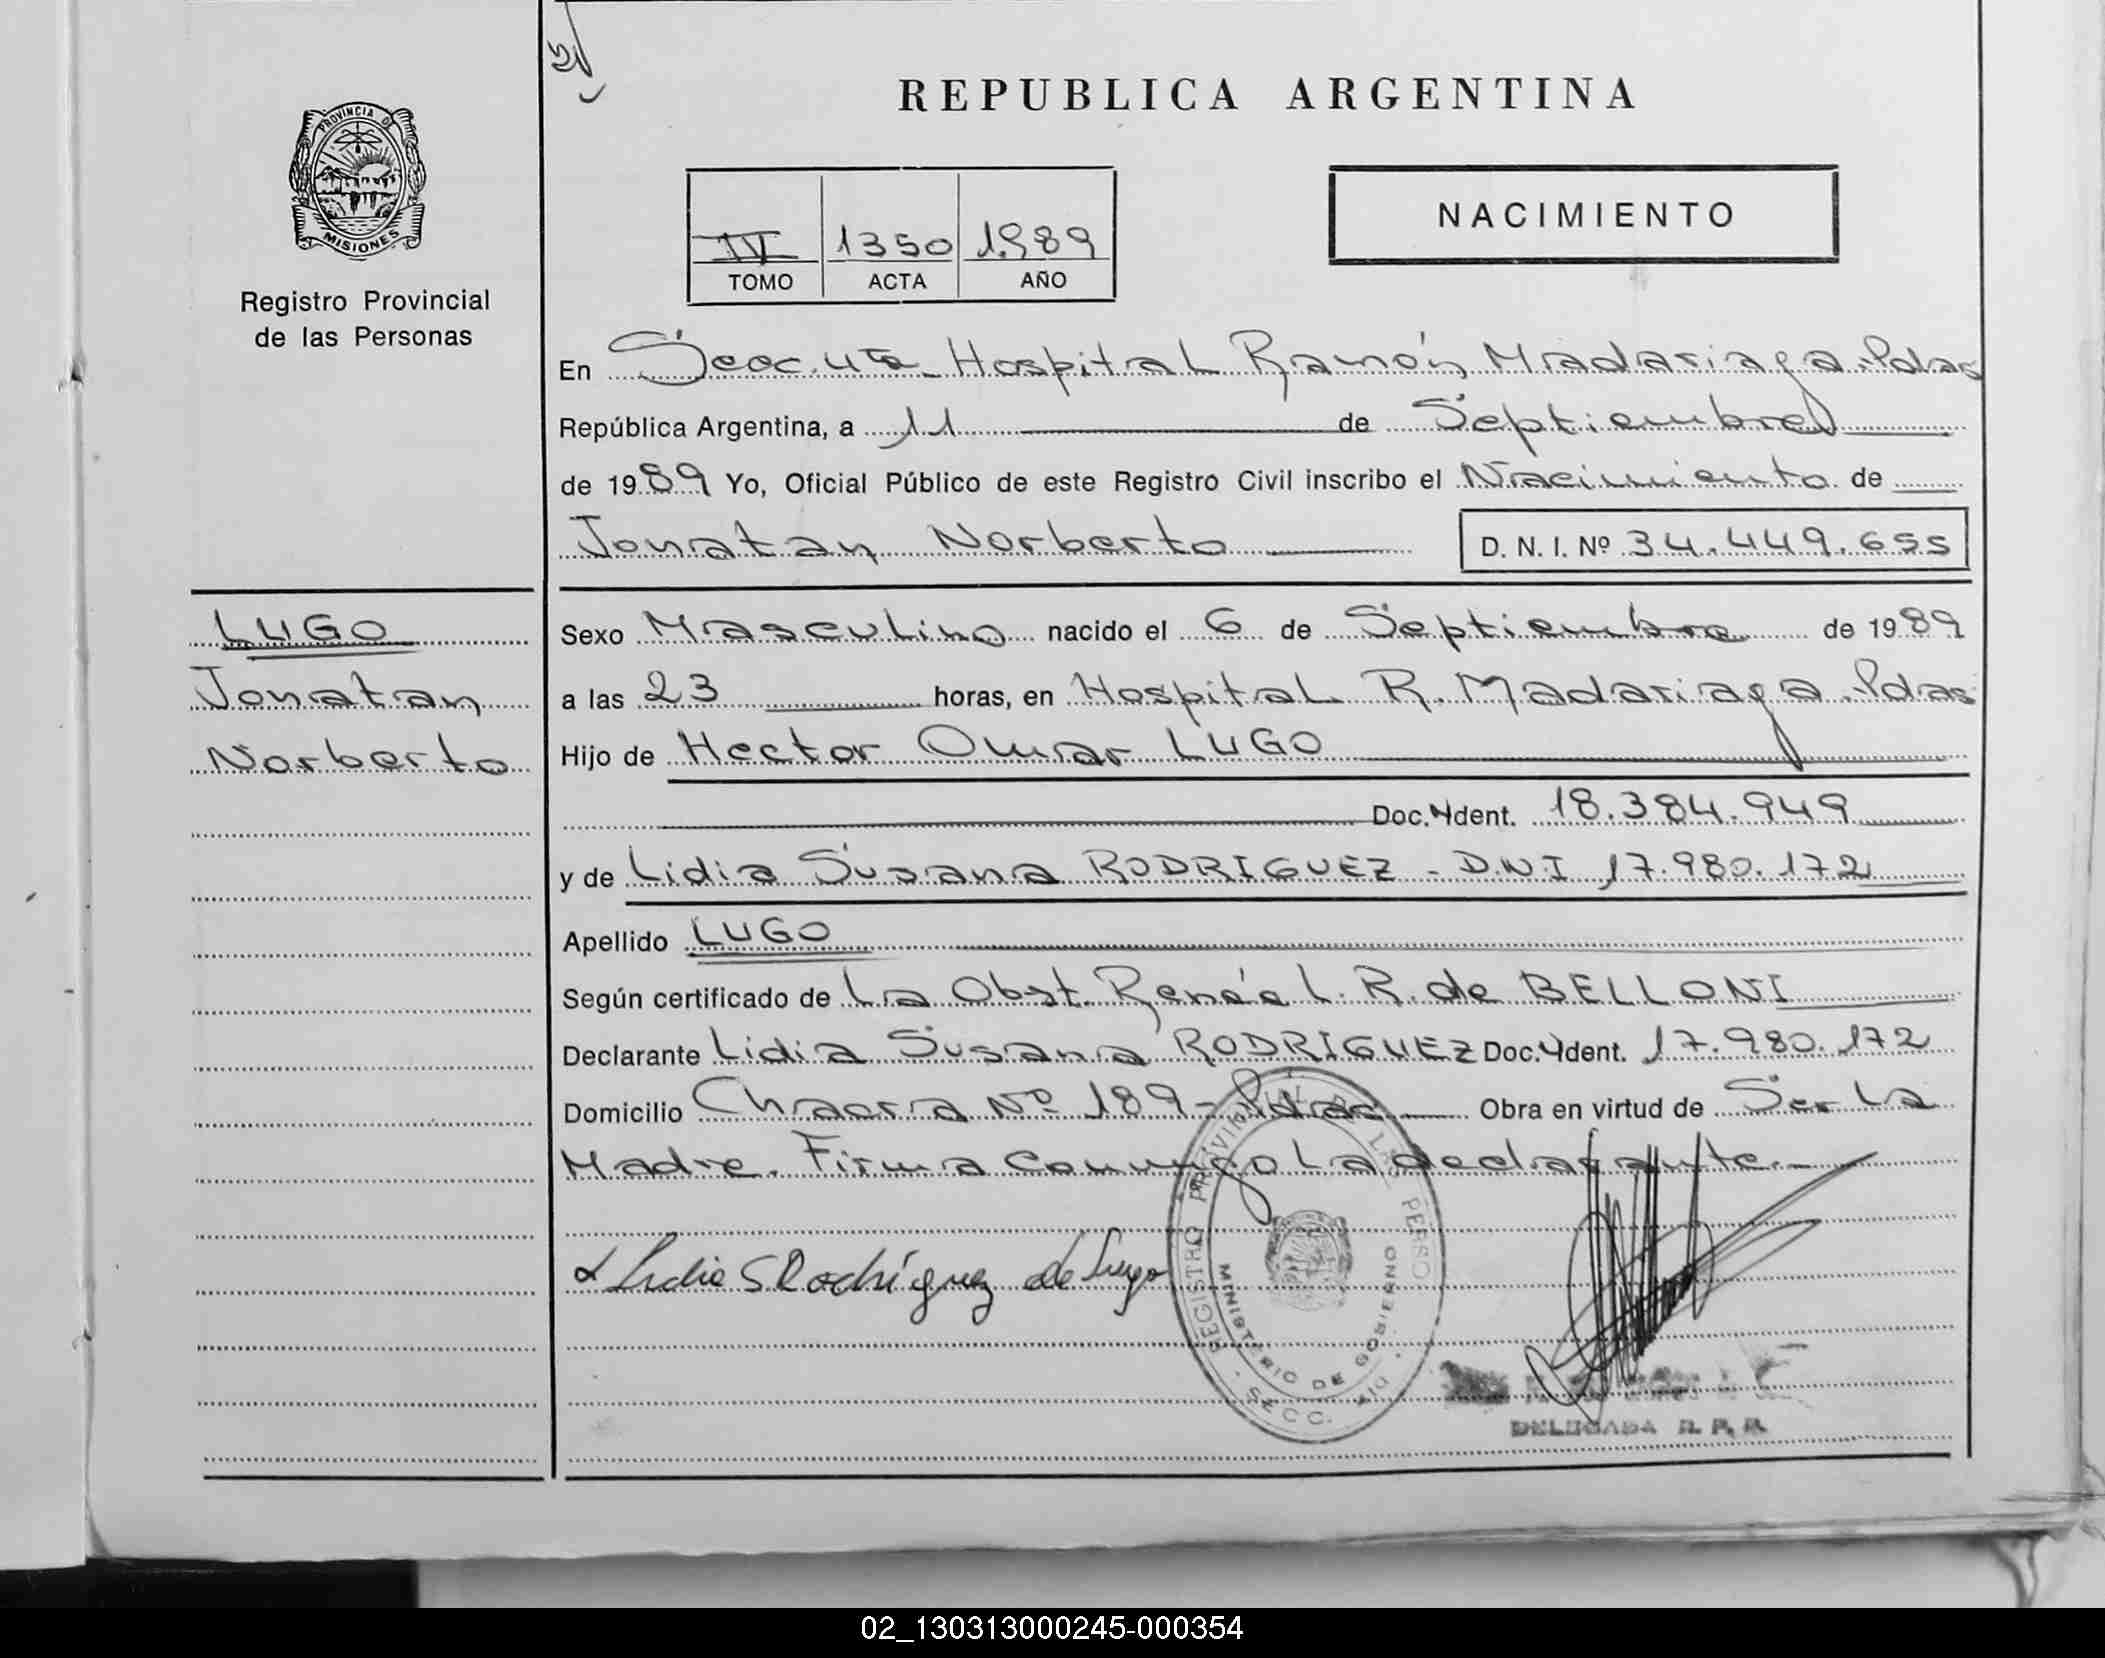 REPUBLICA ARGENTINA
PROVINCIA DE
MISIONES
Registro Provincial
de las Personas
NACIMIENTO
IV 1350 1989
TOMO ACTA AÑO
En Secc. 4ta Hospital Ramón Madariaga. Pdas
República Argentina, a 11 de Septiembre
de 1989 Yo, Oficial Público de este Registro Civil inscribo el Nacimiento de
Jonatan Norberto D. N. I. Nº 34.449.655
LUGO
Jonatan
Norberto
Sexo Masculino nacido el 6 de Septiembre de 1989
a las 23 horas, en Hospital R. Madariaga. Pdas
Hijo de Hector Omar LUGO
Doc. Ident. 18.384.949
y de Lidia Susana RODRIGUEZ - D.N.I 17.980.172
Apellido LUGO
Según certificado de La Obst. Renée L. R. de BELLONI
Declarante Lidia Susana RODRIGUEZ Doc. Ident. 17.980.172
Domicilio Chacra Nº 189 - Pdas Obra en virtud de Ser la
Madre. Firma conmigo la declarante.-
Lidia S Rodríguez de Lugo
REGISTRO PROVINCIAL DE LAS PERSO
MINISTERIO DE GOBIERNO
SECC.
DELEGADA R. P. P.
02_130313000245-000354